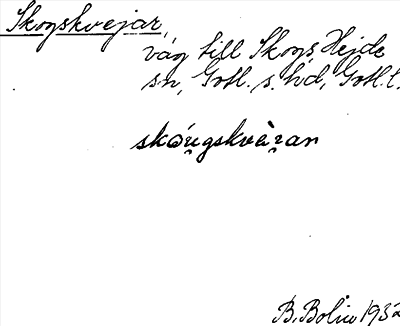 Skogskvejar,
väg till Skogs, Hejde
sn, Gotl. s. hd, Gotl. l.
skóu̯gskvèi̯an
B. Bolin 1932